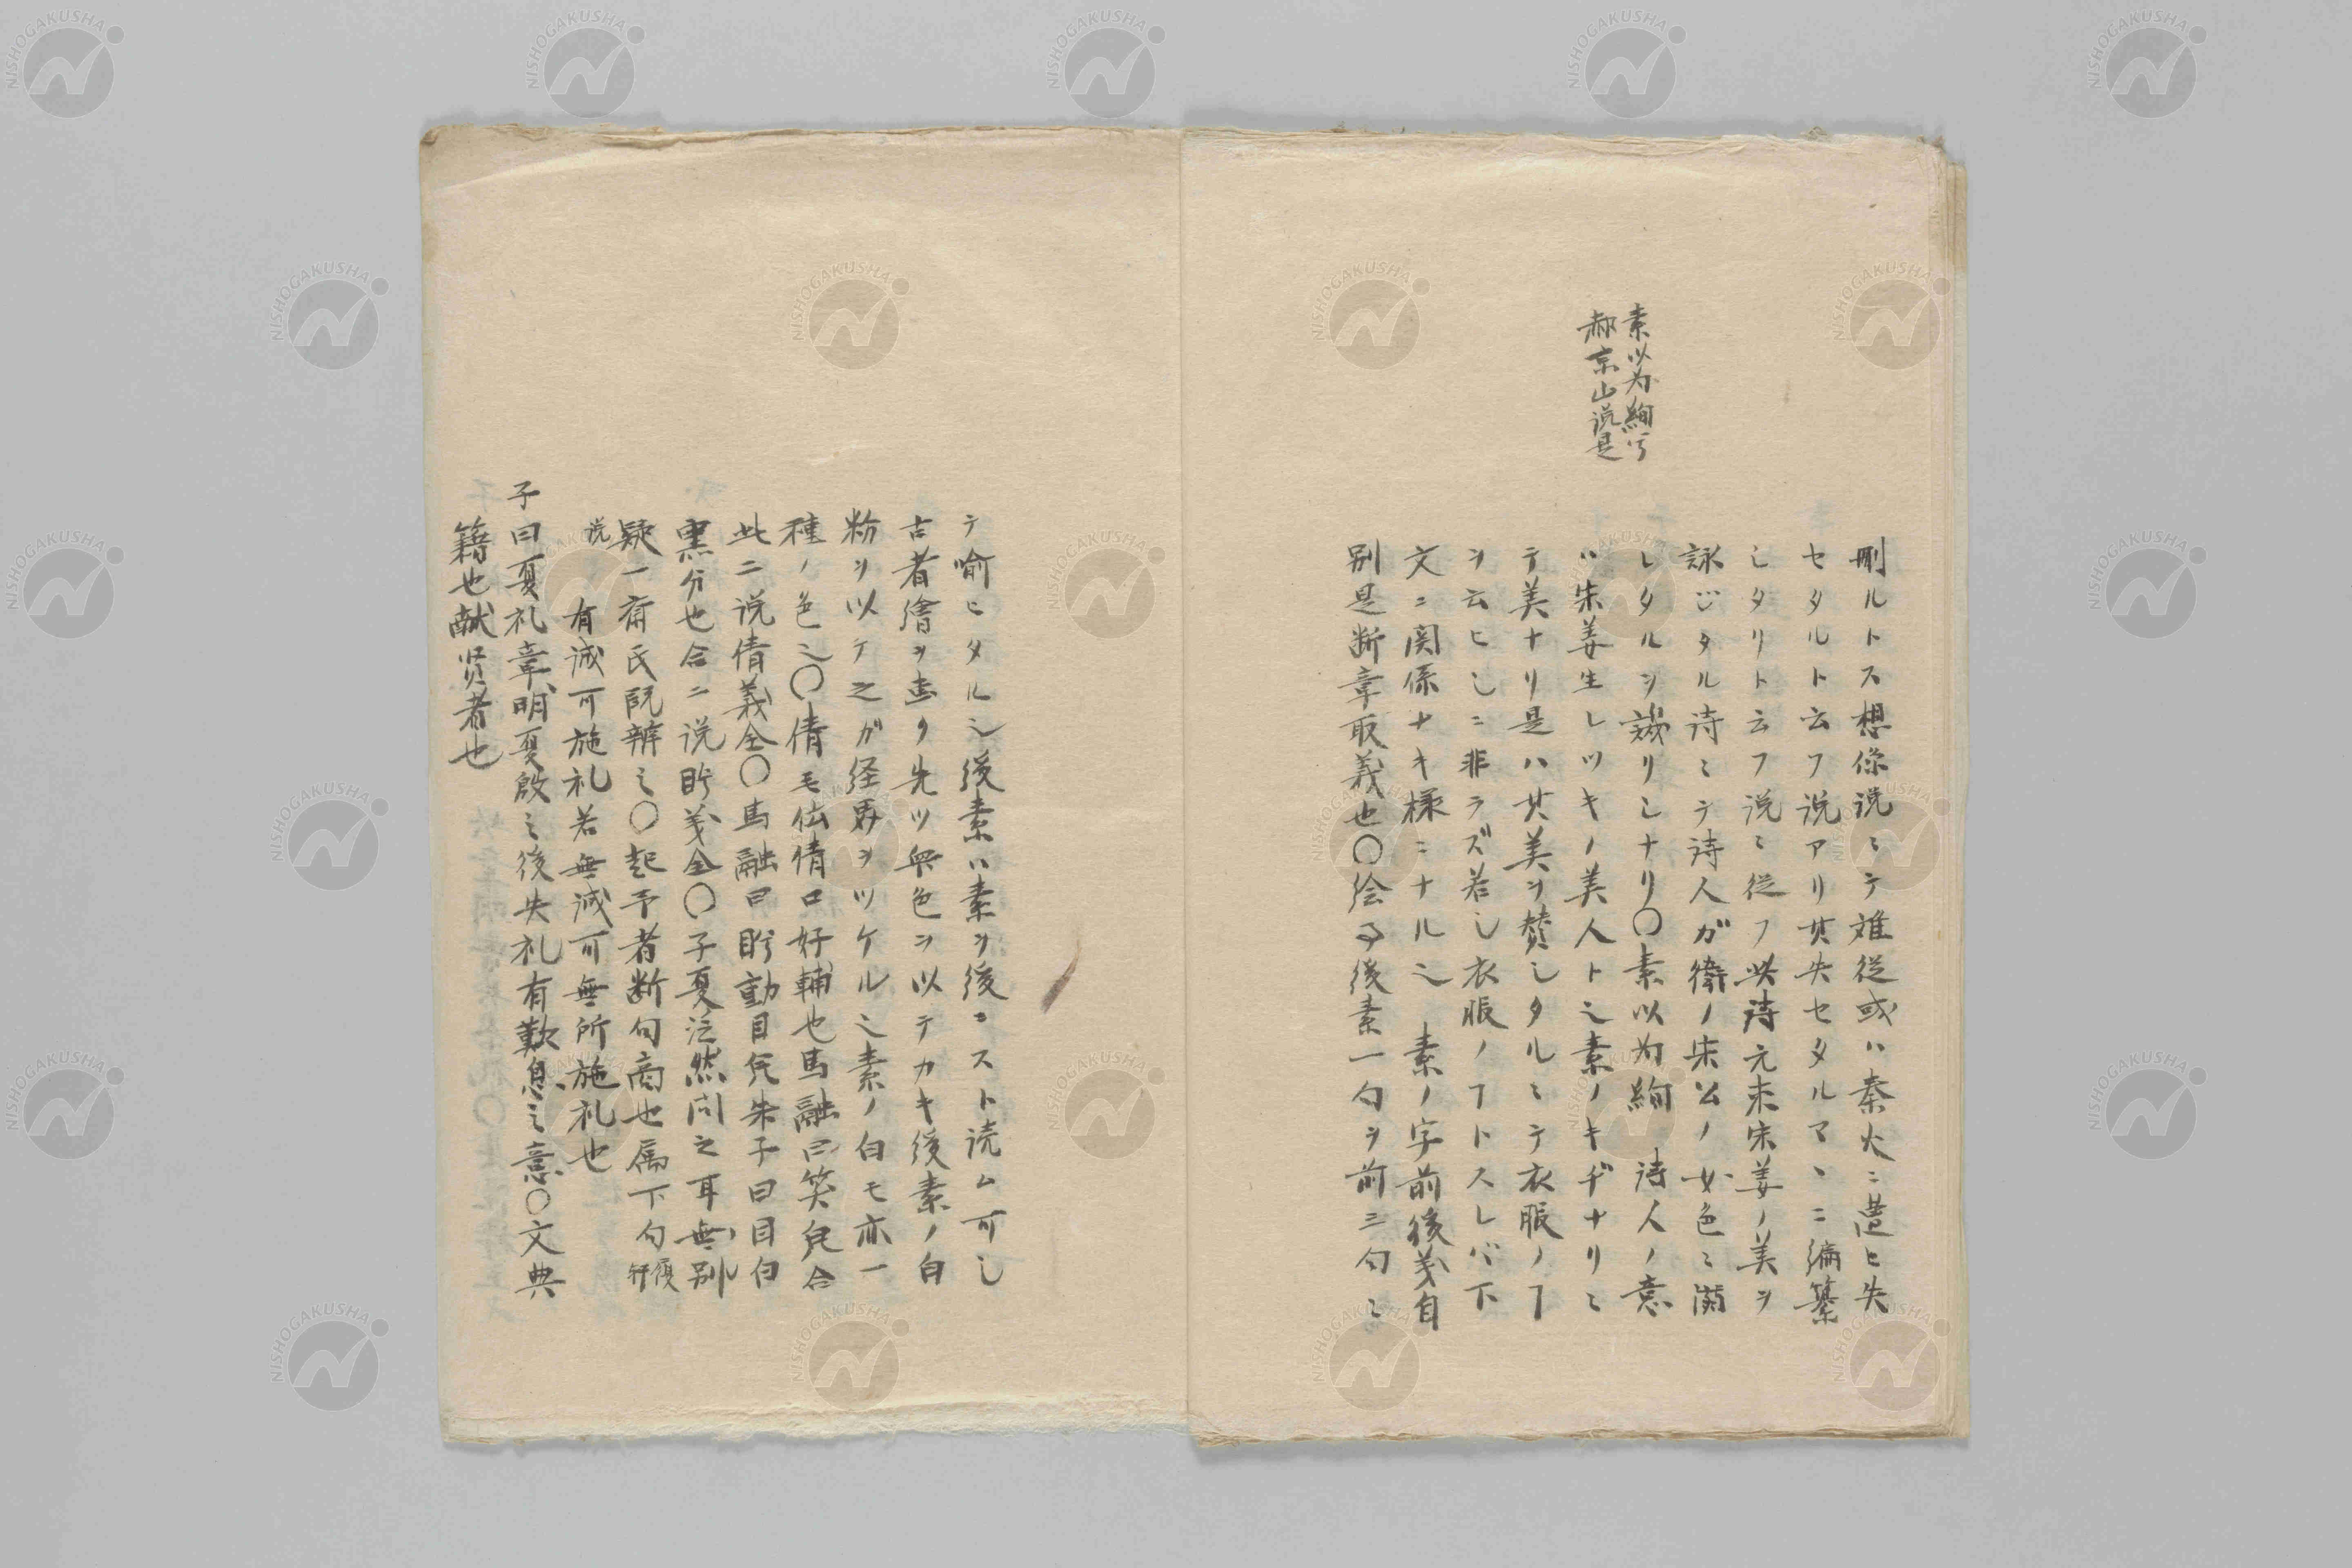 素以为絢兮
郝京山説是
刪ルトス想像説ニテ難従或ハ秦火ニ遭ヒ失
セタルト云フ説アリ其失セタルマヽニ編纂
シタリト云フ説ニ従フ此詩元来宋姜ノ美ヲ
詠ジタル詩ニテ詩人ガ衛ノ宋公ノ女色ニ溺
レタルヲ譏リシナリ〇素以为絢 詩人ノ意
ハ宋姜生レツキノ美人ト之素ノキヂナリニ
テ美ナリ是ハ其美ヲ賛シタルニテ衣服ノヿ
ヲ云ヒシニ非ラズ若し衣服ノヿトスレバ下
文ニ関係ナキ様ニナル之 素ノ字前後義自
別是断章取義也〇絵事後素一句ヲ前三句ニ
テ喻ヒタル之後素ハ素ヲ後ニスト読ム可し
古者繪ヲ画ク先ツ衆色ヲ以テカキ後素ノ白
粉ヲ以テ之ガ経界ヲツケル之素ノ白モ亦一
種ノ色之〇倩毛伝倩口好輔也馬融曰笑皃合
此二説倩義全〇馬融曰盻動目皃朱子曰目白
黒分也合二説盻義全〇子夏泛然问之耳無別
疑一斎氏既辨之〇起予者断句商也属下句履軒
说 有誠可施礼若無誠可無所施礼也
子曰夏礼章明夏殷之後失礼有歎息之意〇文典
籍也献贤者也